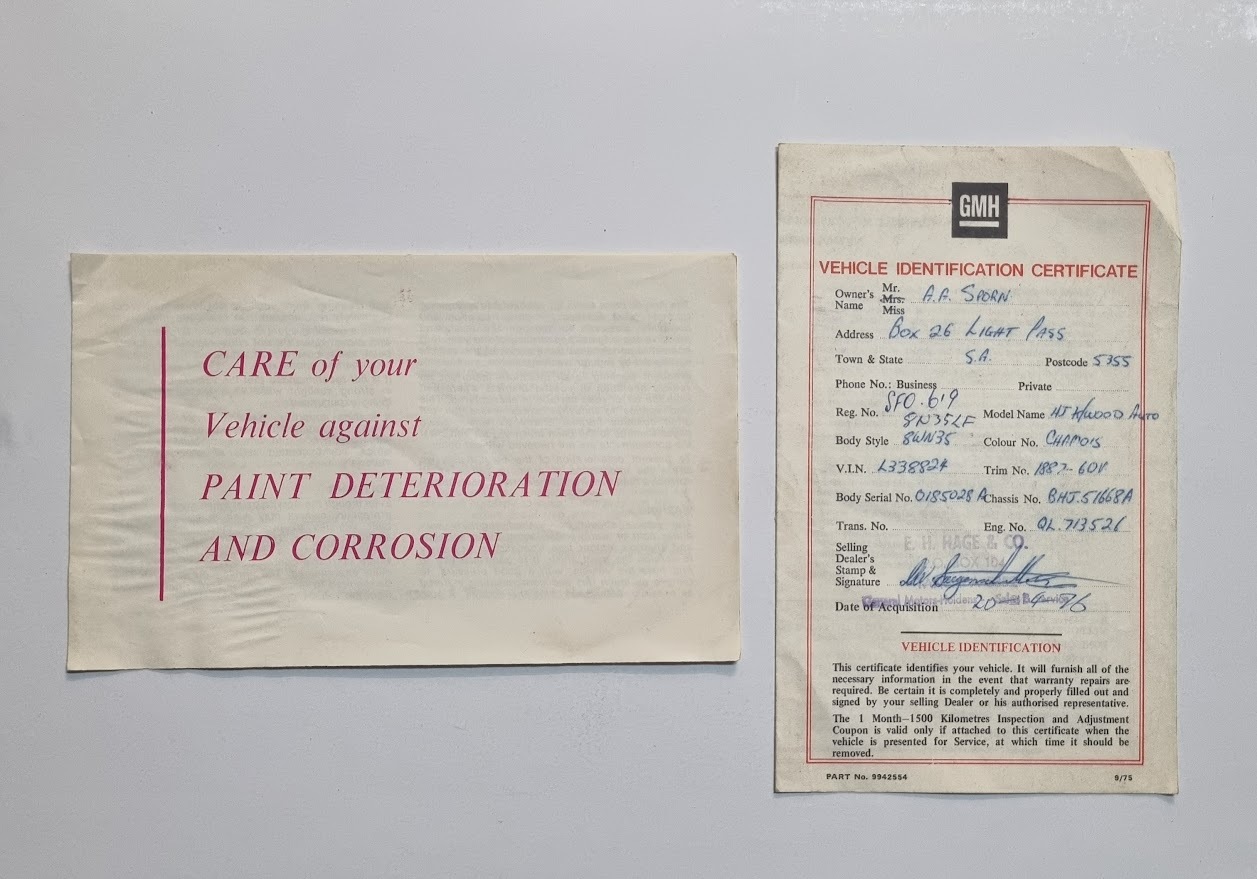 CARE of your
Vehicle against
PAINT DETERIORATION
AND CORROSION
GMH
VEHICLE IDENTIFICATION CERTIFICATE
Owner's Name Mr. Mrs. Miss A.A. SPORN
Address Box 26 LIGHT PASS
Town & State S.A. Postcode 5355
Phone No.: Business Private
SFO.619
Reg. No. 8N35LF Model Name HJ K/WOOD AUTO
Body Style 8WN35 Colour No. CHAMOIS
V.I.N. L338824 Trim No. 1887-60V
Body Serial No. 0185028 A Chassis No. BHJ.51668A
Trans. No. Eng. No. QL.713526
E. H. HAGE & CO.
BOX 104
Selling
Dealer's
Stamp &
Signature
General Motors-Holdens Sales & Service
Date of Acquisition 20-4-76
VEHICLE IDENTIFICATION
This certificate identifies your vehicle. It will furnish all of the
necessary information in the event that warranty repairs are
required. Be certain it is completely and properly filled out and
signed by your selling Dealer or his authorised representative.
The 1 Month—1500 Kilometres Inspection and Adjustment
Coupon is valid only if attached to this certificate when the
vehicle is presented for Service, at which time it should be
removed.
PART No. 9942554 9/75